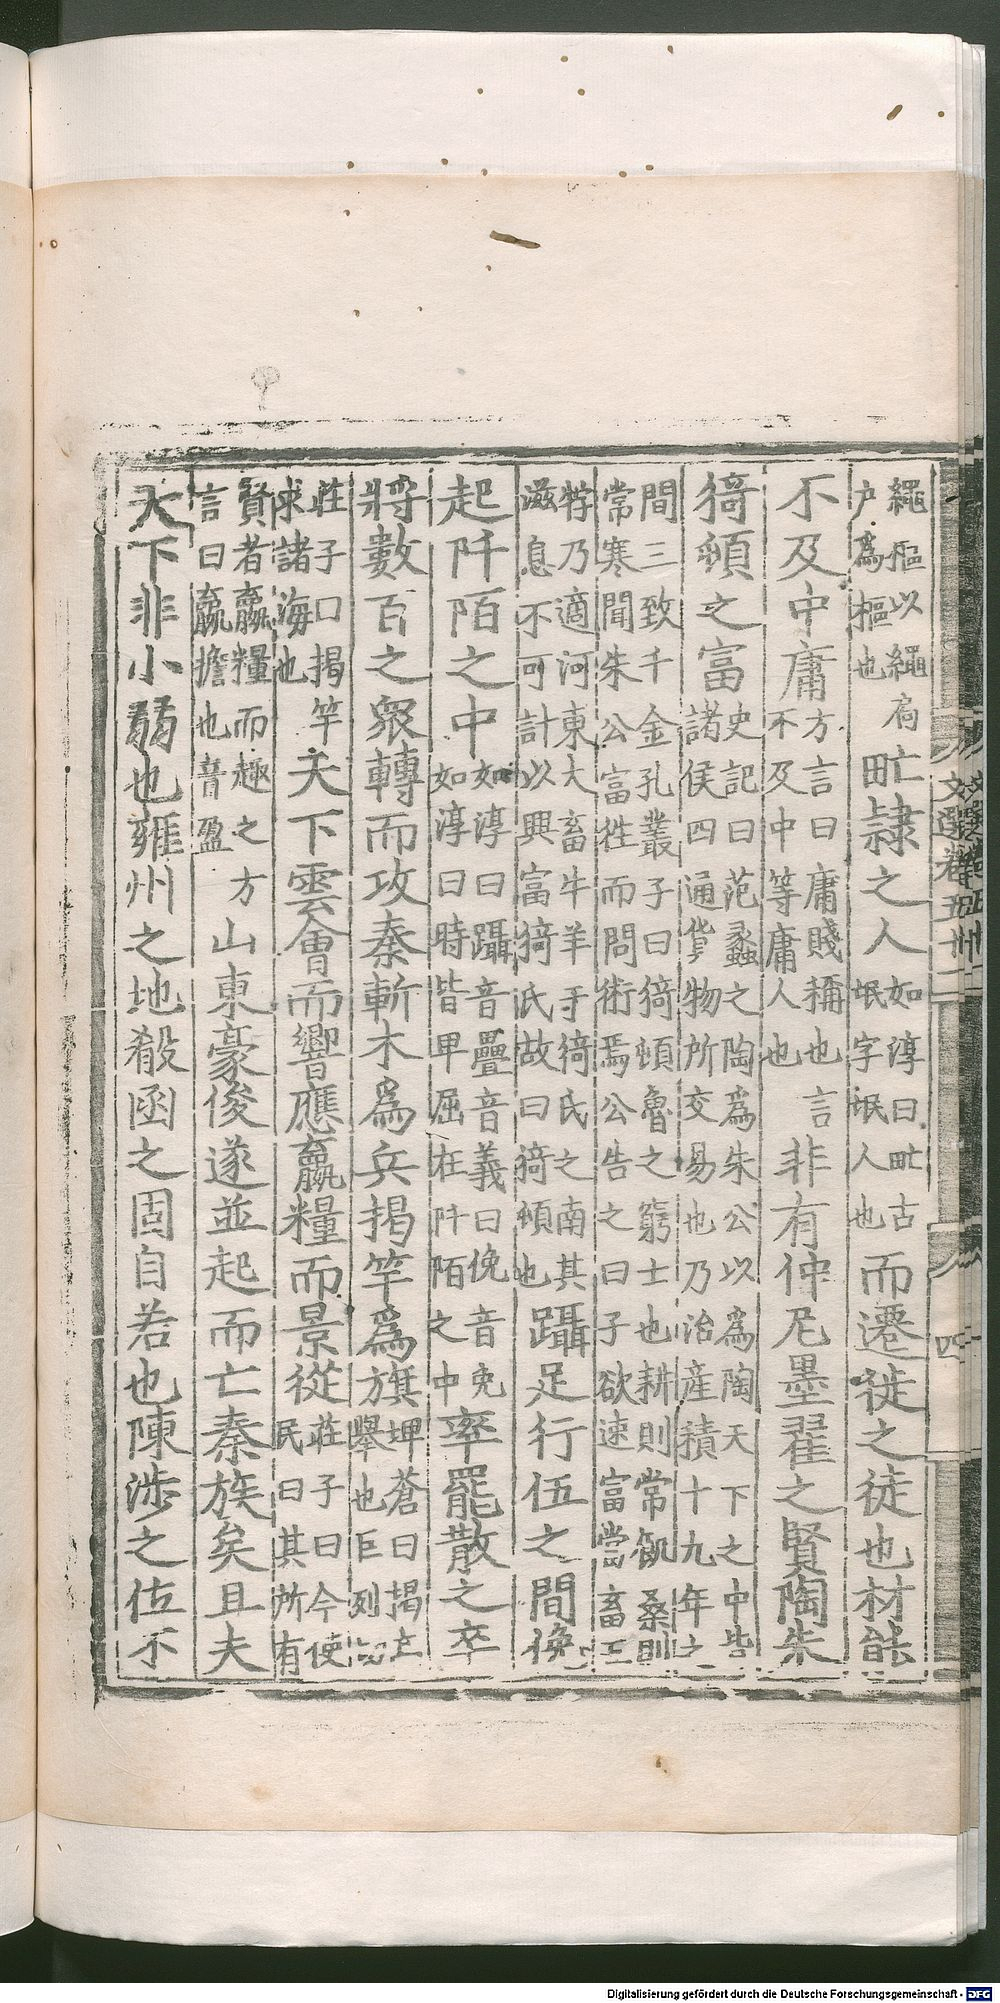 繩樞以繩扃
户爲樞也
甿隷之人
如淳曰甿古
氓字氓人也
而遷徙之徒也材能
不及中庸
方言曰庸賤稱也言
不及中等庸人也
非有仲尼墨翟之賢陶朱
猗頓之富
史記曰范蠡之陶爲朱公以爲陶天下之中諸
侯四通貨物所交易也乃治產積十九年之
間三致千金孔叢子曰猗頓魯之窮士也耕則常飢桑則
常寒聞朱公富往而問術焉公告之曰子欲速富當畜五
牸乃適河東大畜牛羊于猗氏之南其
滋息不可計以興富猗氏故曰猗頓也
躡足行伍之間俛
起阡陌之中
如淳曰躡音疊音義曰俛音免
如淳曰時皆卑屈在阡陌之中
率罷散之卒
將數百之衆轉而攻秦斬木爲兵揭竿爲旗
埤蒼曰揭立
舉也巨列切
莊子曰揭竿
求諸海也
天下雲會而響應贏糧而景從
莊子曰今使
民曰其所有
賢者贏糧而趣之方
言曰贏擔也音盈
山東豪俊遂並起而亡秦族矣且夫
天下非小弱也雍州之地殽函之固自若也陳涉之位不
文選卷五十一
四
Digitalisierung gefördert durch die Deutsche Forschungsgemeinschaft - DFG